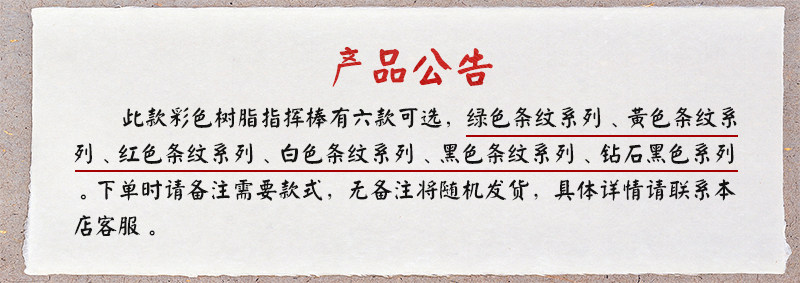 产品公告
此款彩色树脂指挥棒有六款可选，绿色条纹系列、黄色条纹系
列、红色条纹系列、白色条纹系列、黑色条纹系列、钻石黑色系列
。下单时请备注需要款式，无备注将随机发货，具体详情请联系本
店客服。